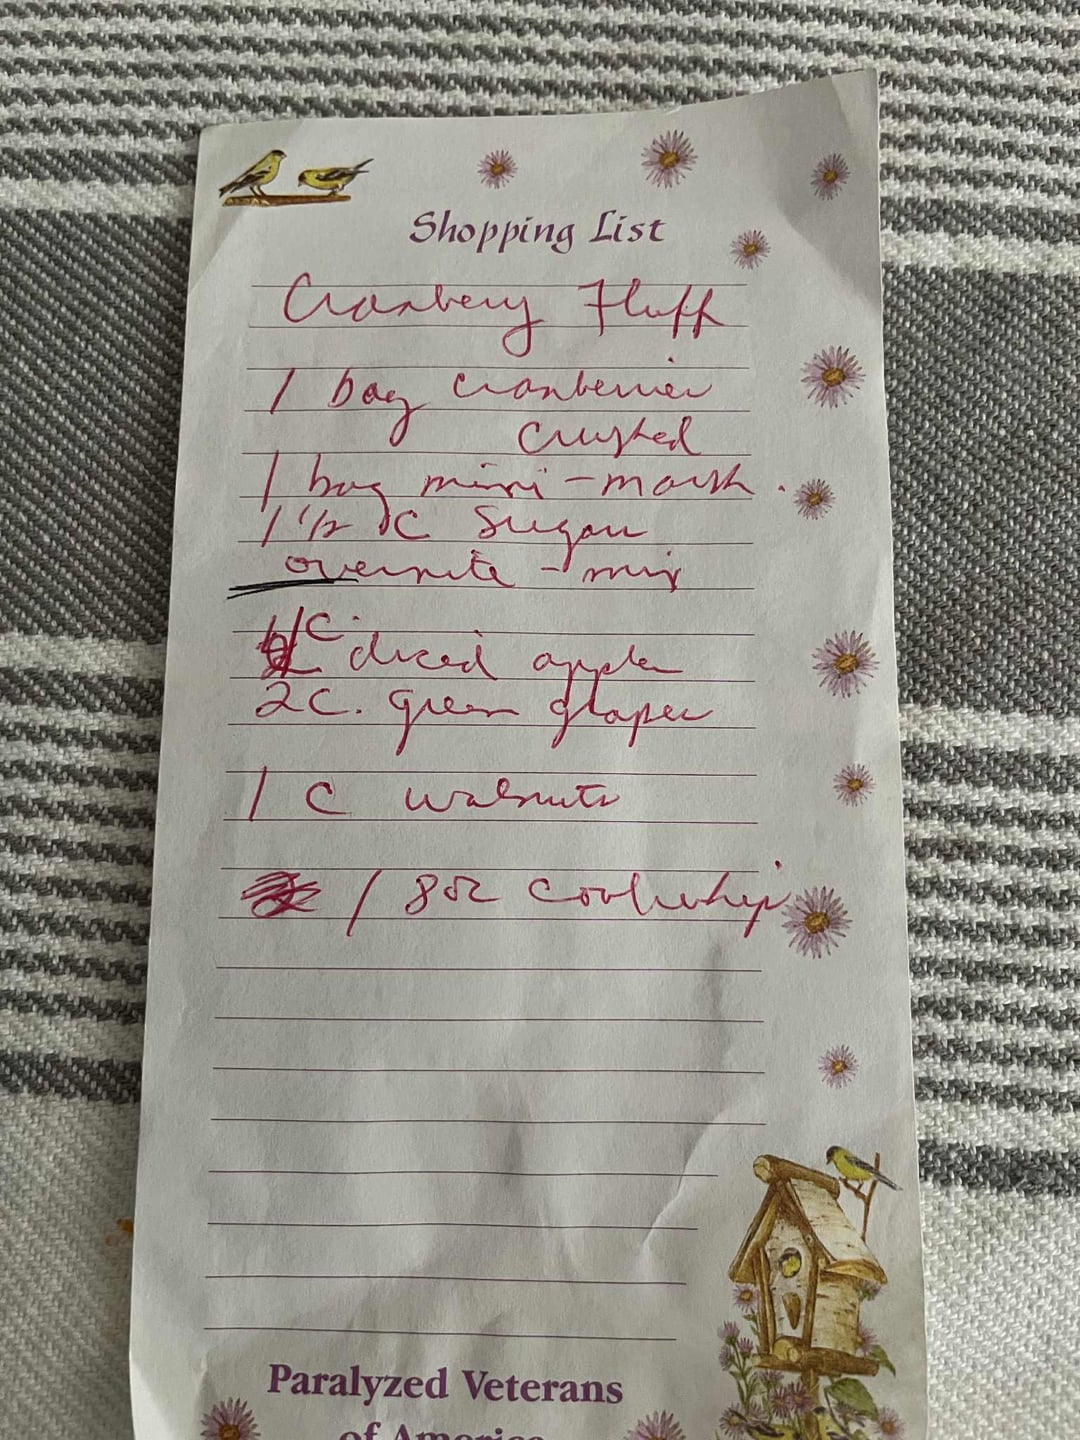 Shopping List
Cranbery Fluff
1 bag cranberries
crushed
1 bag mini-marsh.
1 1/2 C Sugar
overnite - mix
1 C.
diced apple
2 C. green grapes
1 C walnuts
1 8 oz Coolwhip
Paralyzed Veterans
of America